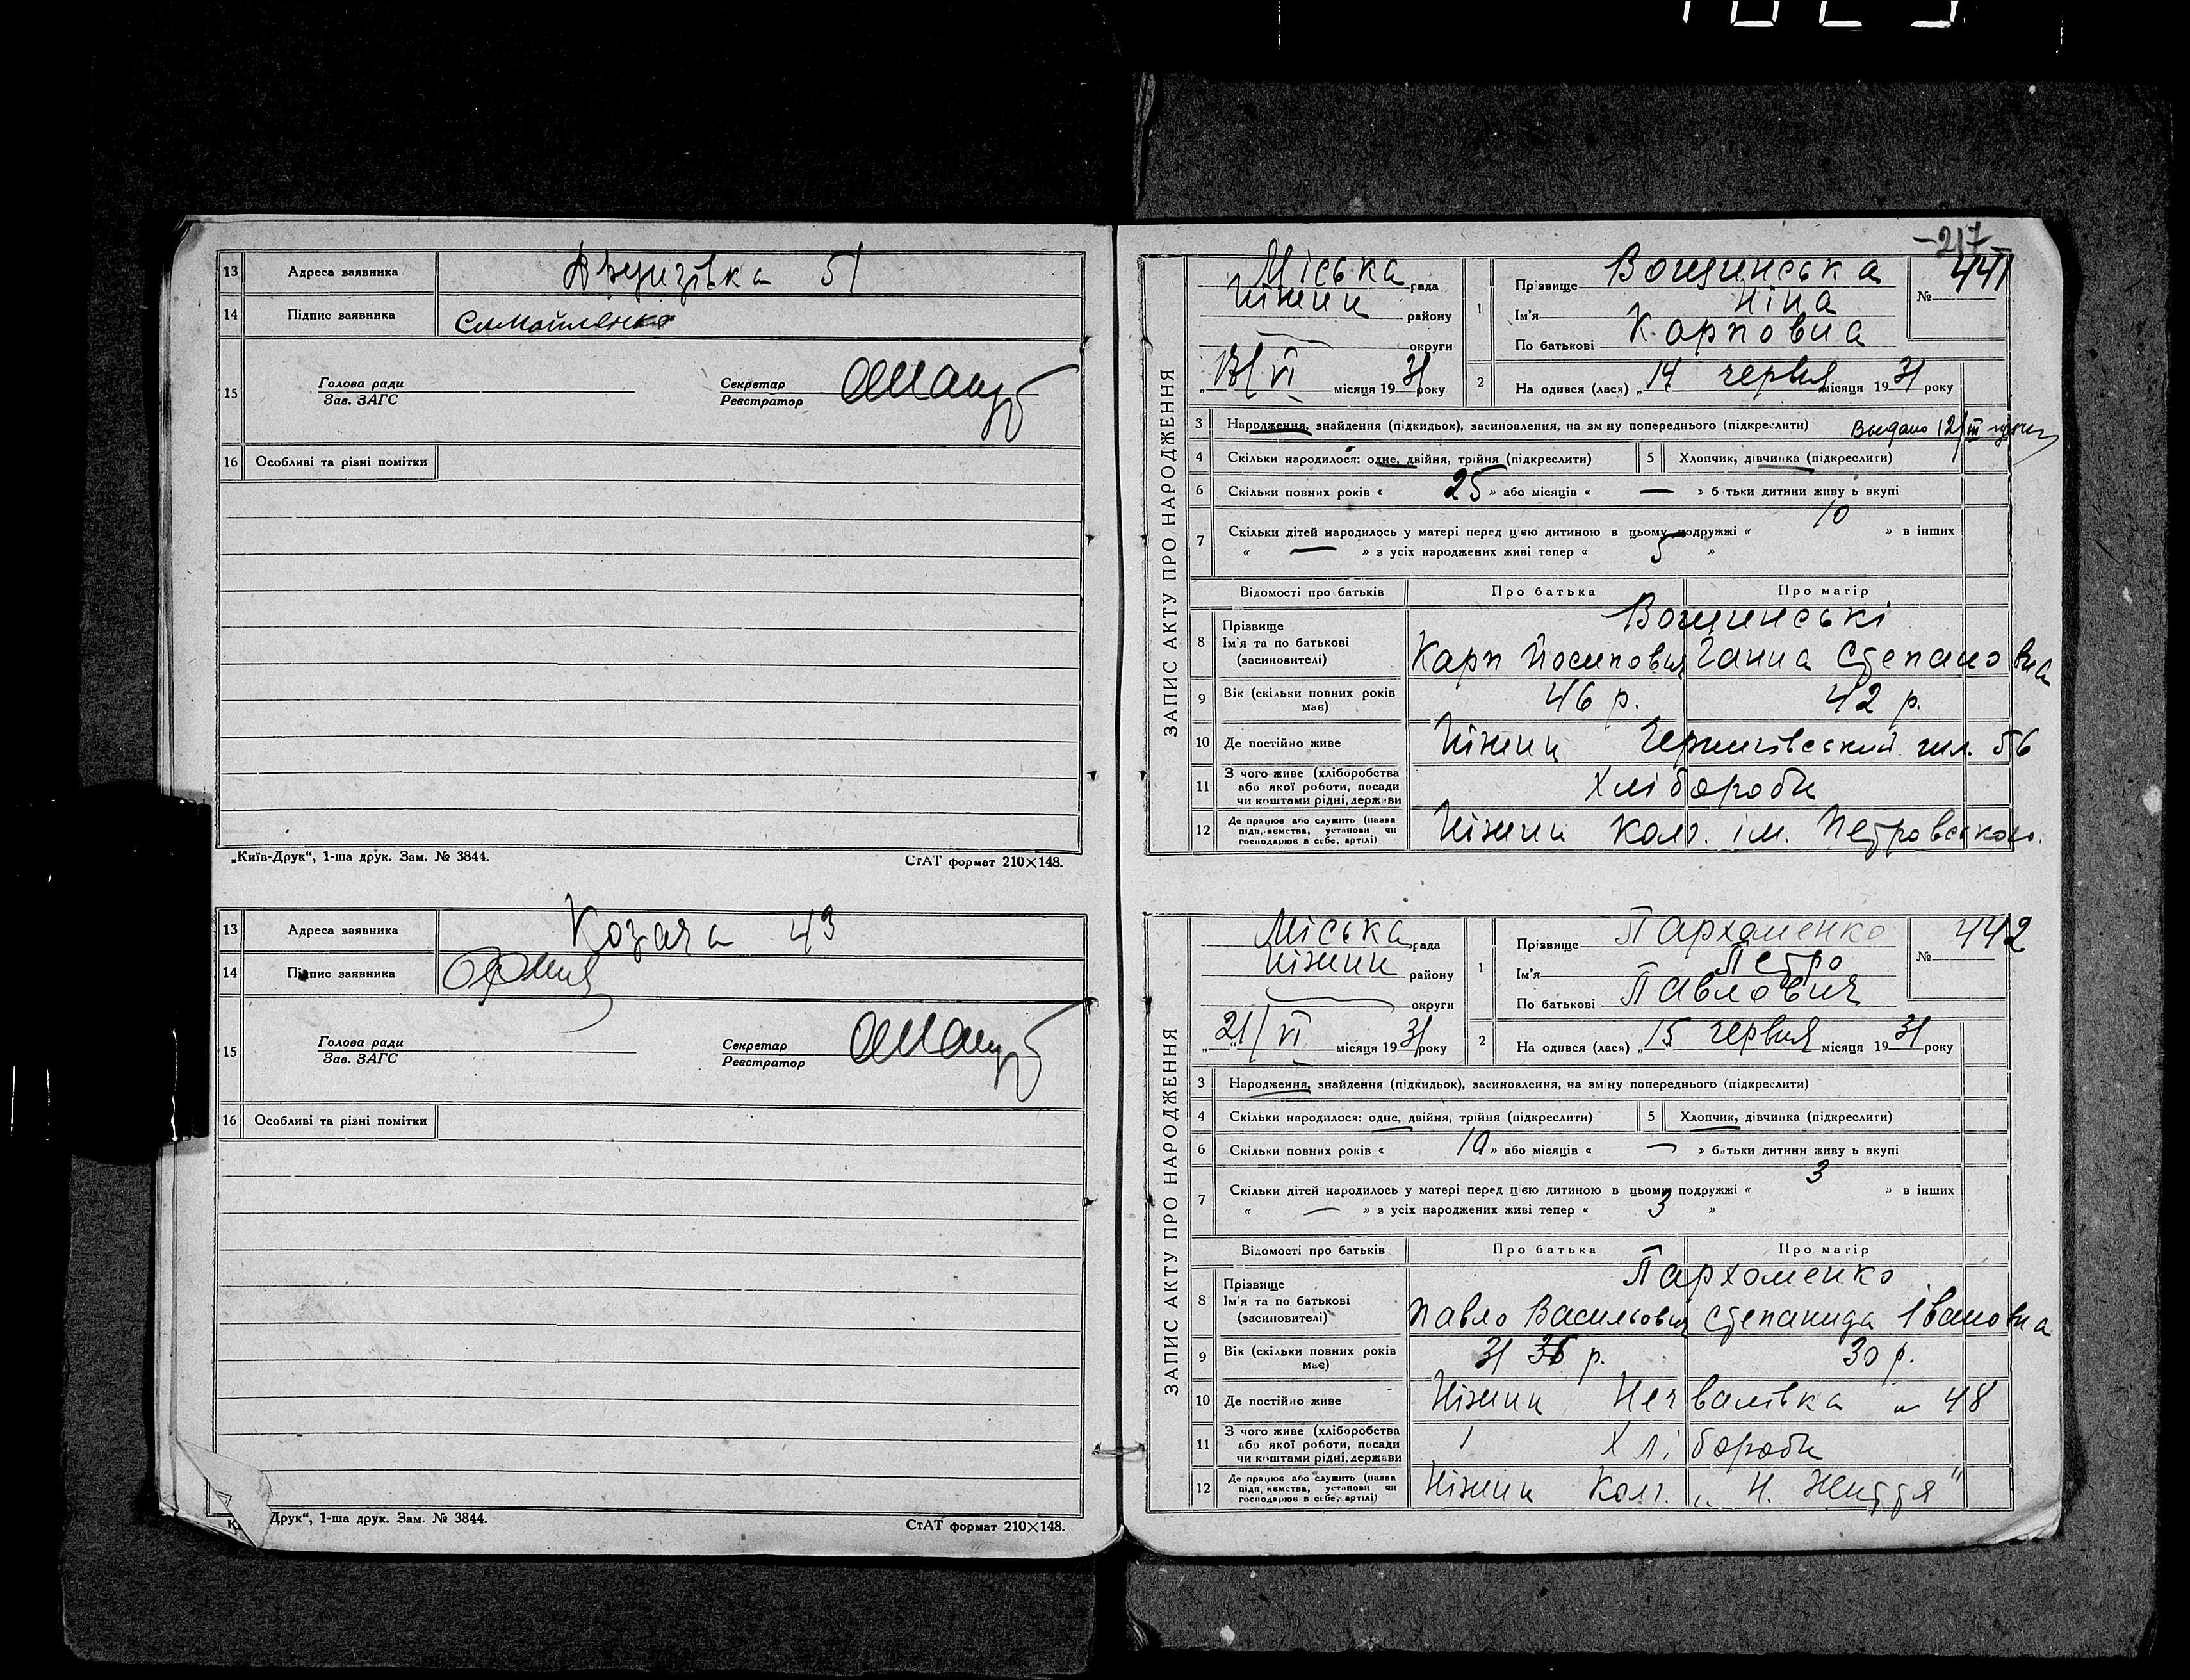 13 Адреса заявника 51
14 Підпис заявника Самойленко
15 Голова ради
Зав. ЗАГС
Секретар
Реєстратор
16 Особливі та різні помітки
„Київ-Друк“, 1-ша друк. Зам. № 3844. СтАТ формат 210×148.
13 Адреса заявника Козача 43
14 Підпис заявника
15 Голова ради
Зав. ЗАГС
Секретар
Реєстратор
16 Особливі та різні помітки
Друк“, 1-ша друк. Зам. № 3844. СтАТ формат 210×148.
217
ЗАПИС АКТУ ПРО НАРОДЖЕННЯ
Міська рада
Ніжин району
округи
VI місяця 1931 року
1 Прізвище Вощинська
Ім'я Ніна
По батькові Карповна
№ 441
2 На одився (лася) „14 червня місяця 1931 року
3 Народження, знайдення (підкидьок), засиновлення, на зм ну попереднього (підкреслити) Выдано 12/III
4 Скільки народилося: одне, двійня, трійня (підкреслити) 5 Хлопчик, дівчинка (підкреслити)
6 Скільки повних років « 25 » або місяців « — » б тьки дитини живу ь вкупі
7 Скільки дітей народилось у матері перед цією дитиною в цьому подружжі « 10 » в інших
« — » з усіх народжених живі тепер « 5 »
Відомості про батьків Про батька Про матір
8 Прізвище
Ім'я та по батькові
(засиновителі)
Вощинські
Карп Йосипович Ганна Степановна
9 Вік (скільки повних років має) 46 р. 42 р.
10 Де постійно живе Ніжин Чернигівський шл. 56
11 З чого живе (хліборобства
або якої роботи, посади
чи коштами рідні, держави
Хлібороби
12 Де працює або служить (назва
підприємства, установи чи
господарює в себе, артілі)
Ніжин Колг. ім. Петровського.
ЗАПИС АКТУ ПРО НАРОДЖЕННЯ
Міська рада
Ніжин району
округи
„21/VI місяця 1931 року
1 Прізвище Пархоменко
Ім'я Петро
По батькові Павлович
№ 442
2 На одився (лася) „15 червня місяця 1931 року
3 Народження, знайдення (підкидьок), засиновлення, на зм ну попереднього (підкреслити)
4 Скільки народилося: одне, двійня, трійня (підкреслити) 5 Хлопчик, дівчинка (підкреслити)
6 Скільки повних років « 10 » або місяців « — » батьки дитини живу ь вкупі
7 Скільки дітей народилось у матері перед цією дитиною в цьому подружжі « 3 » в інших
« — » з усіх народжених живі тепер « 3 »
Відомості про батьків Про батька Про матір
8 Прізвище
Ім'я та по батькові
(засиновителі)
Пархоменко
Павло Васильович Степанида Івановна
9 Вік (скільки повних років має) 31 р. 30 р.
10 Де постійно живе Ніжин Нечвалівка 48
11 З чого живе (хліборобства
або якої роботи, посади
чи коштами рідні, держави
Хлібороби
12 Де працює або служить (назва
підприємства, установи чи
господарює в себе, артілі)
Ніжин Колг. „Н. Життя“